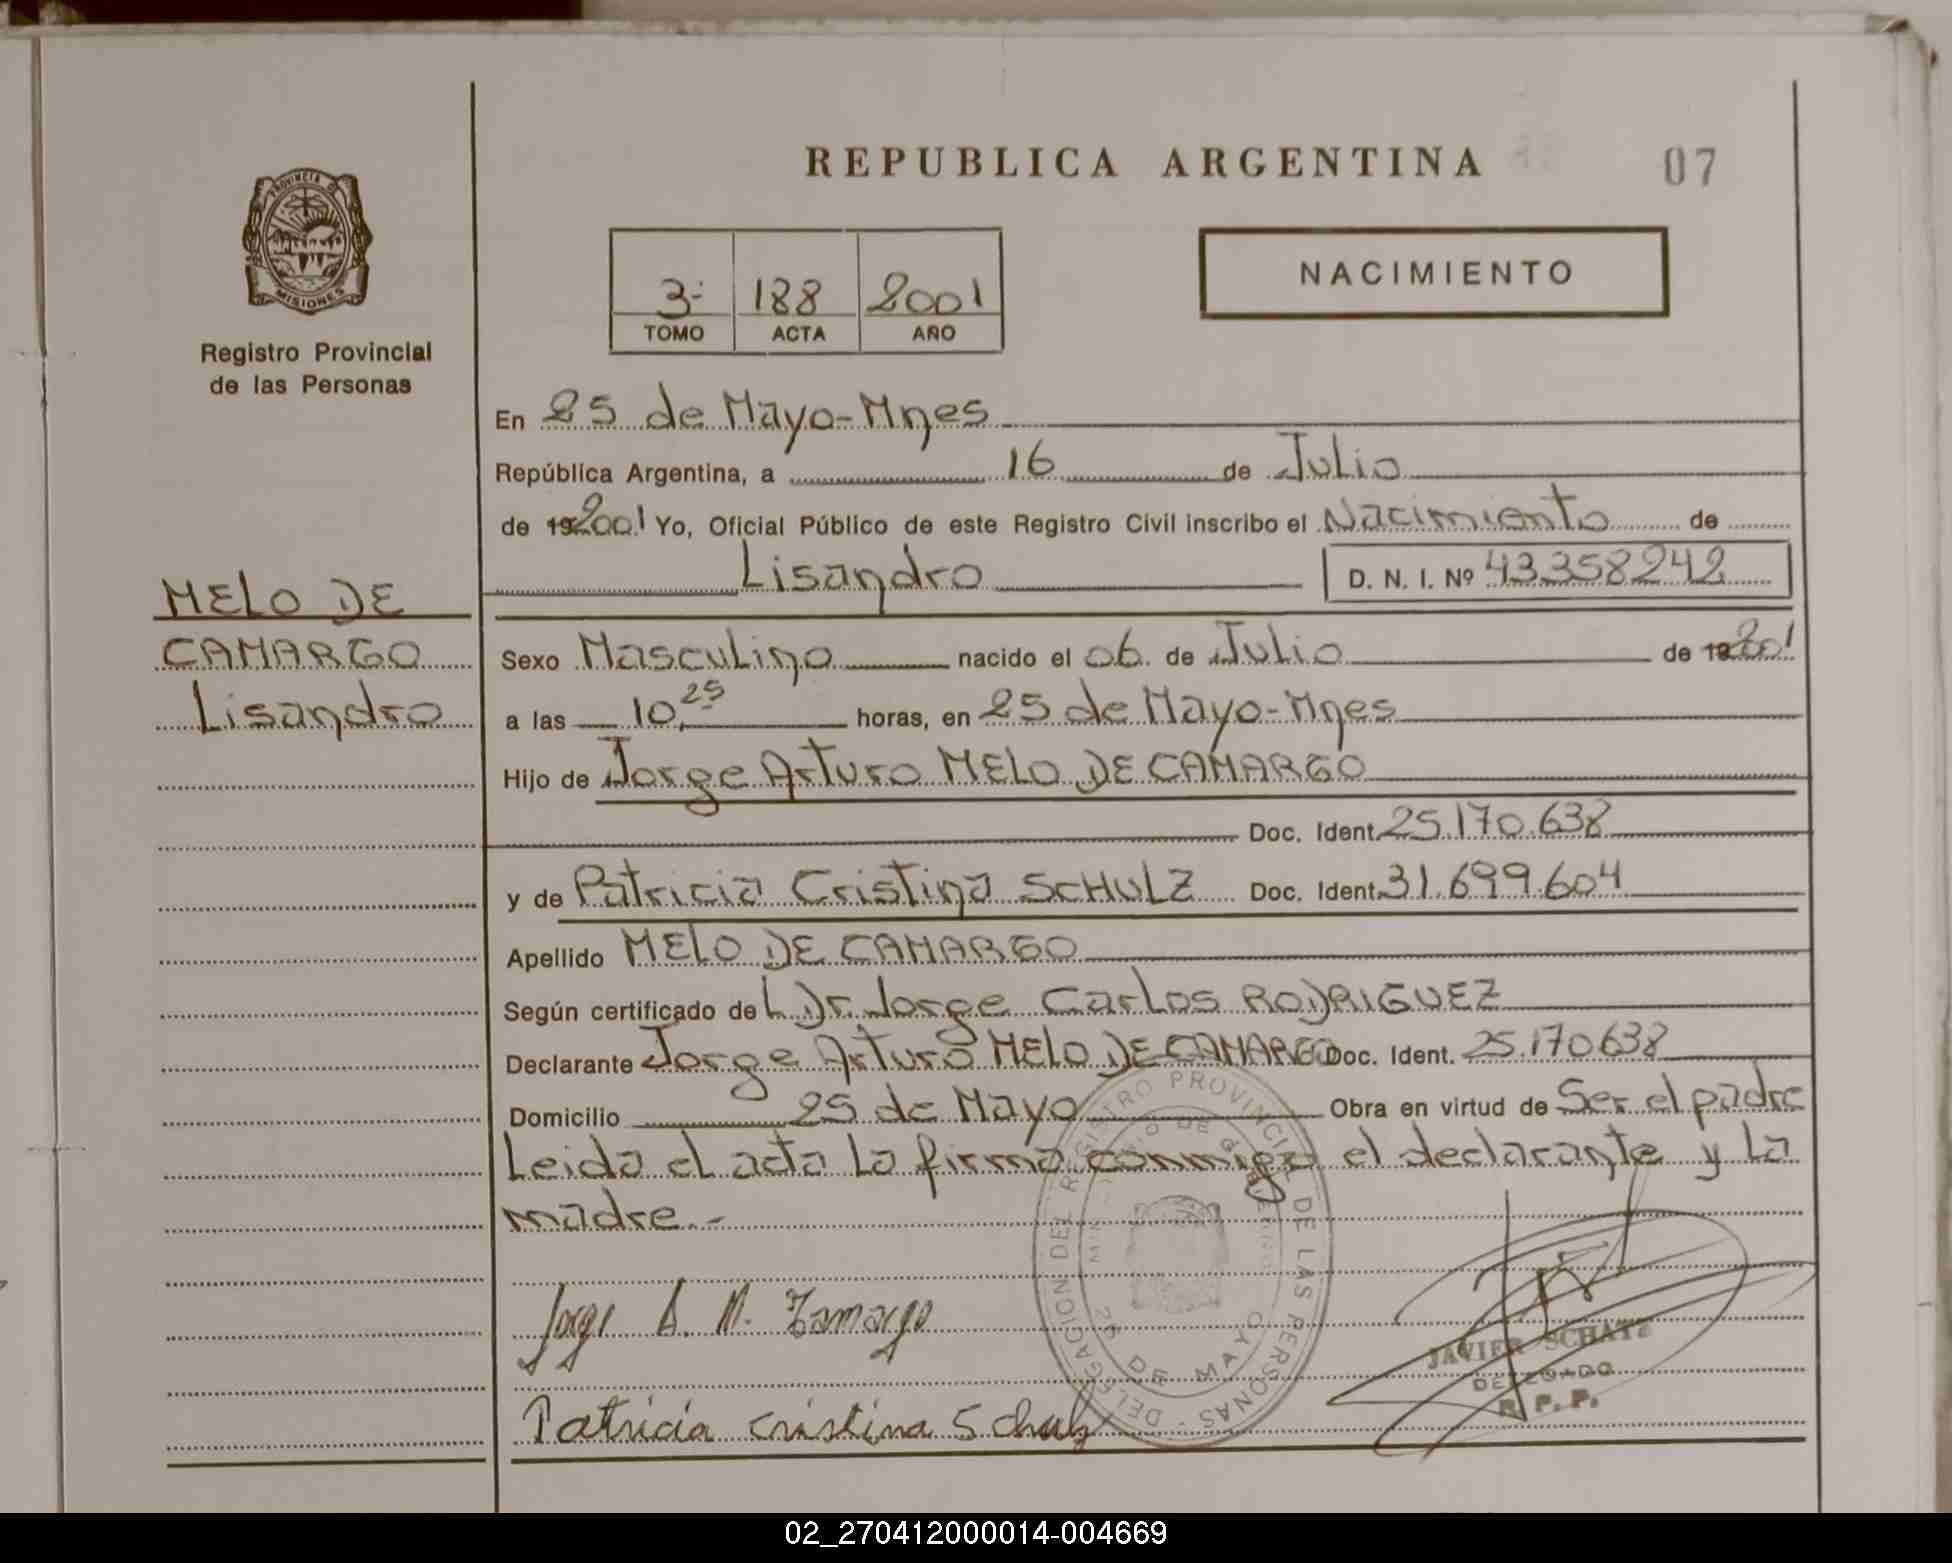 REPUBLICA ARGENTINA
07
PROVINCIA DE
MISIONES
Registro Provincial
de las Personas
3- 188 2001
TOMO ACTA AÑO
NACIMIENTO
En 25 de Mayo-Mnes
República Argentina, a 16 de Julio
de 192001 Yo, Oficial Público de este Registro Civil inscribo el Nacimiento de
Lisandro D. N. I. Nº 43358242
MELO DE
CAMARGO
Lisandro
Sexo Masculino nacido el 06 de Julio de 192001
a las 10,25 horas, en 25 de Mayo-Mnes
Hijo de Jorge Arturo MELO DE CAMARGO
Doc. Ident. 25.170.638
y de Patricia Cristina SCHULZ Doc. Ident. 31.699.604
Apellido MELO DE CAMARGO
Según certificado de L Dr. Jorge Carlos RODRIGUEZ
Declarante Jorge Arturo MELO DE CAMARGO Doc. Ident. 25.170638
Domicilio 25 de Mayo Obra en virtud de Ser el padre
Leida el acta la firma conmigo el declarante y la
madre.-
DELEGACION DEL REGISTRO PROVINCIAL DE LAS PERSONAS -
25 DE MAYO
Jorge A. M. Camargo
Patricia Cristina Schulz
JAVIER SCHATZ
DELEGADO
R. P. P.
02_270412000014-004669